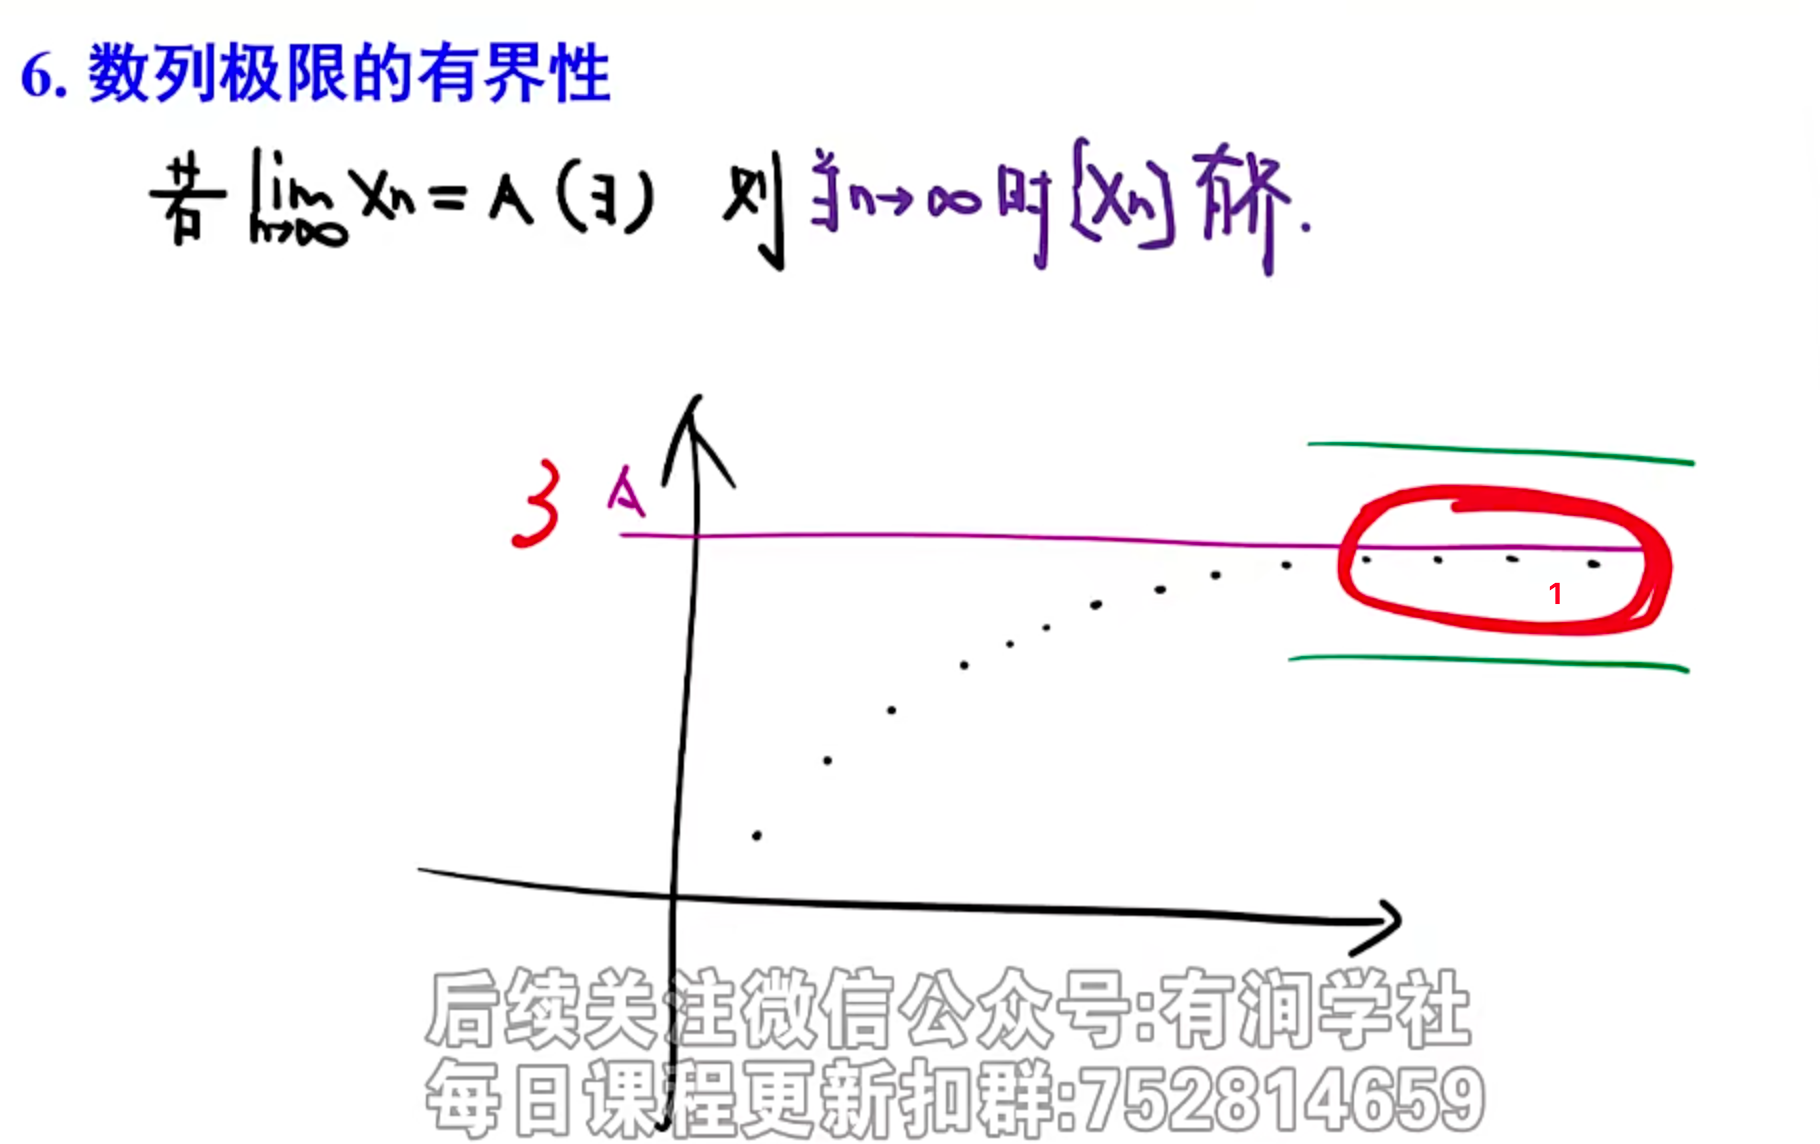 6. 数列极限的有界性
若 lim Xn = A (∃) 则 当n→∞时 {Xn} 有界.
n→∞
3 A
1
后续关注微信公众号:有润学社
每日课程更新扣群:752814659